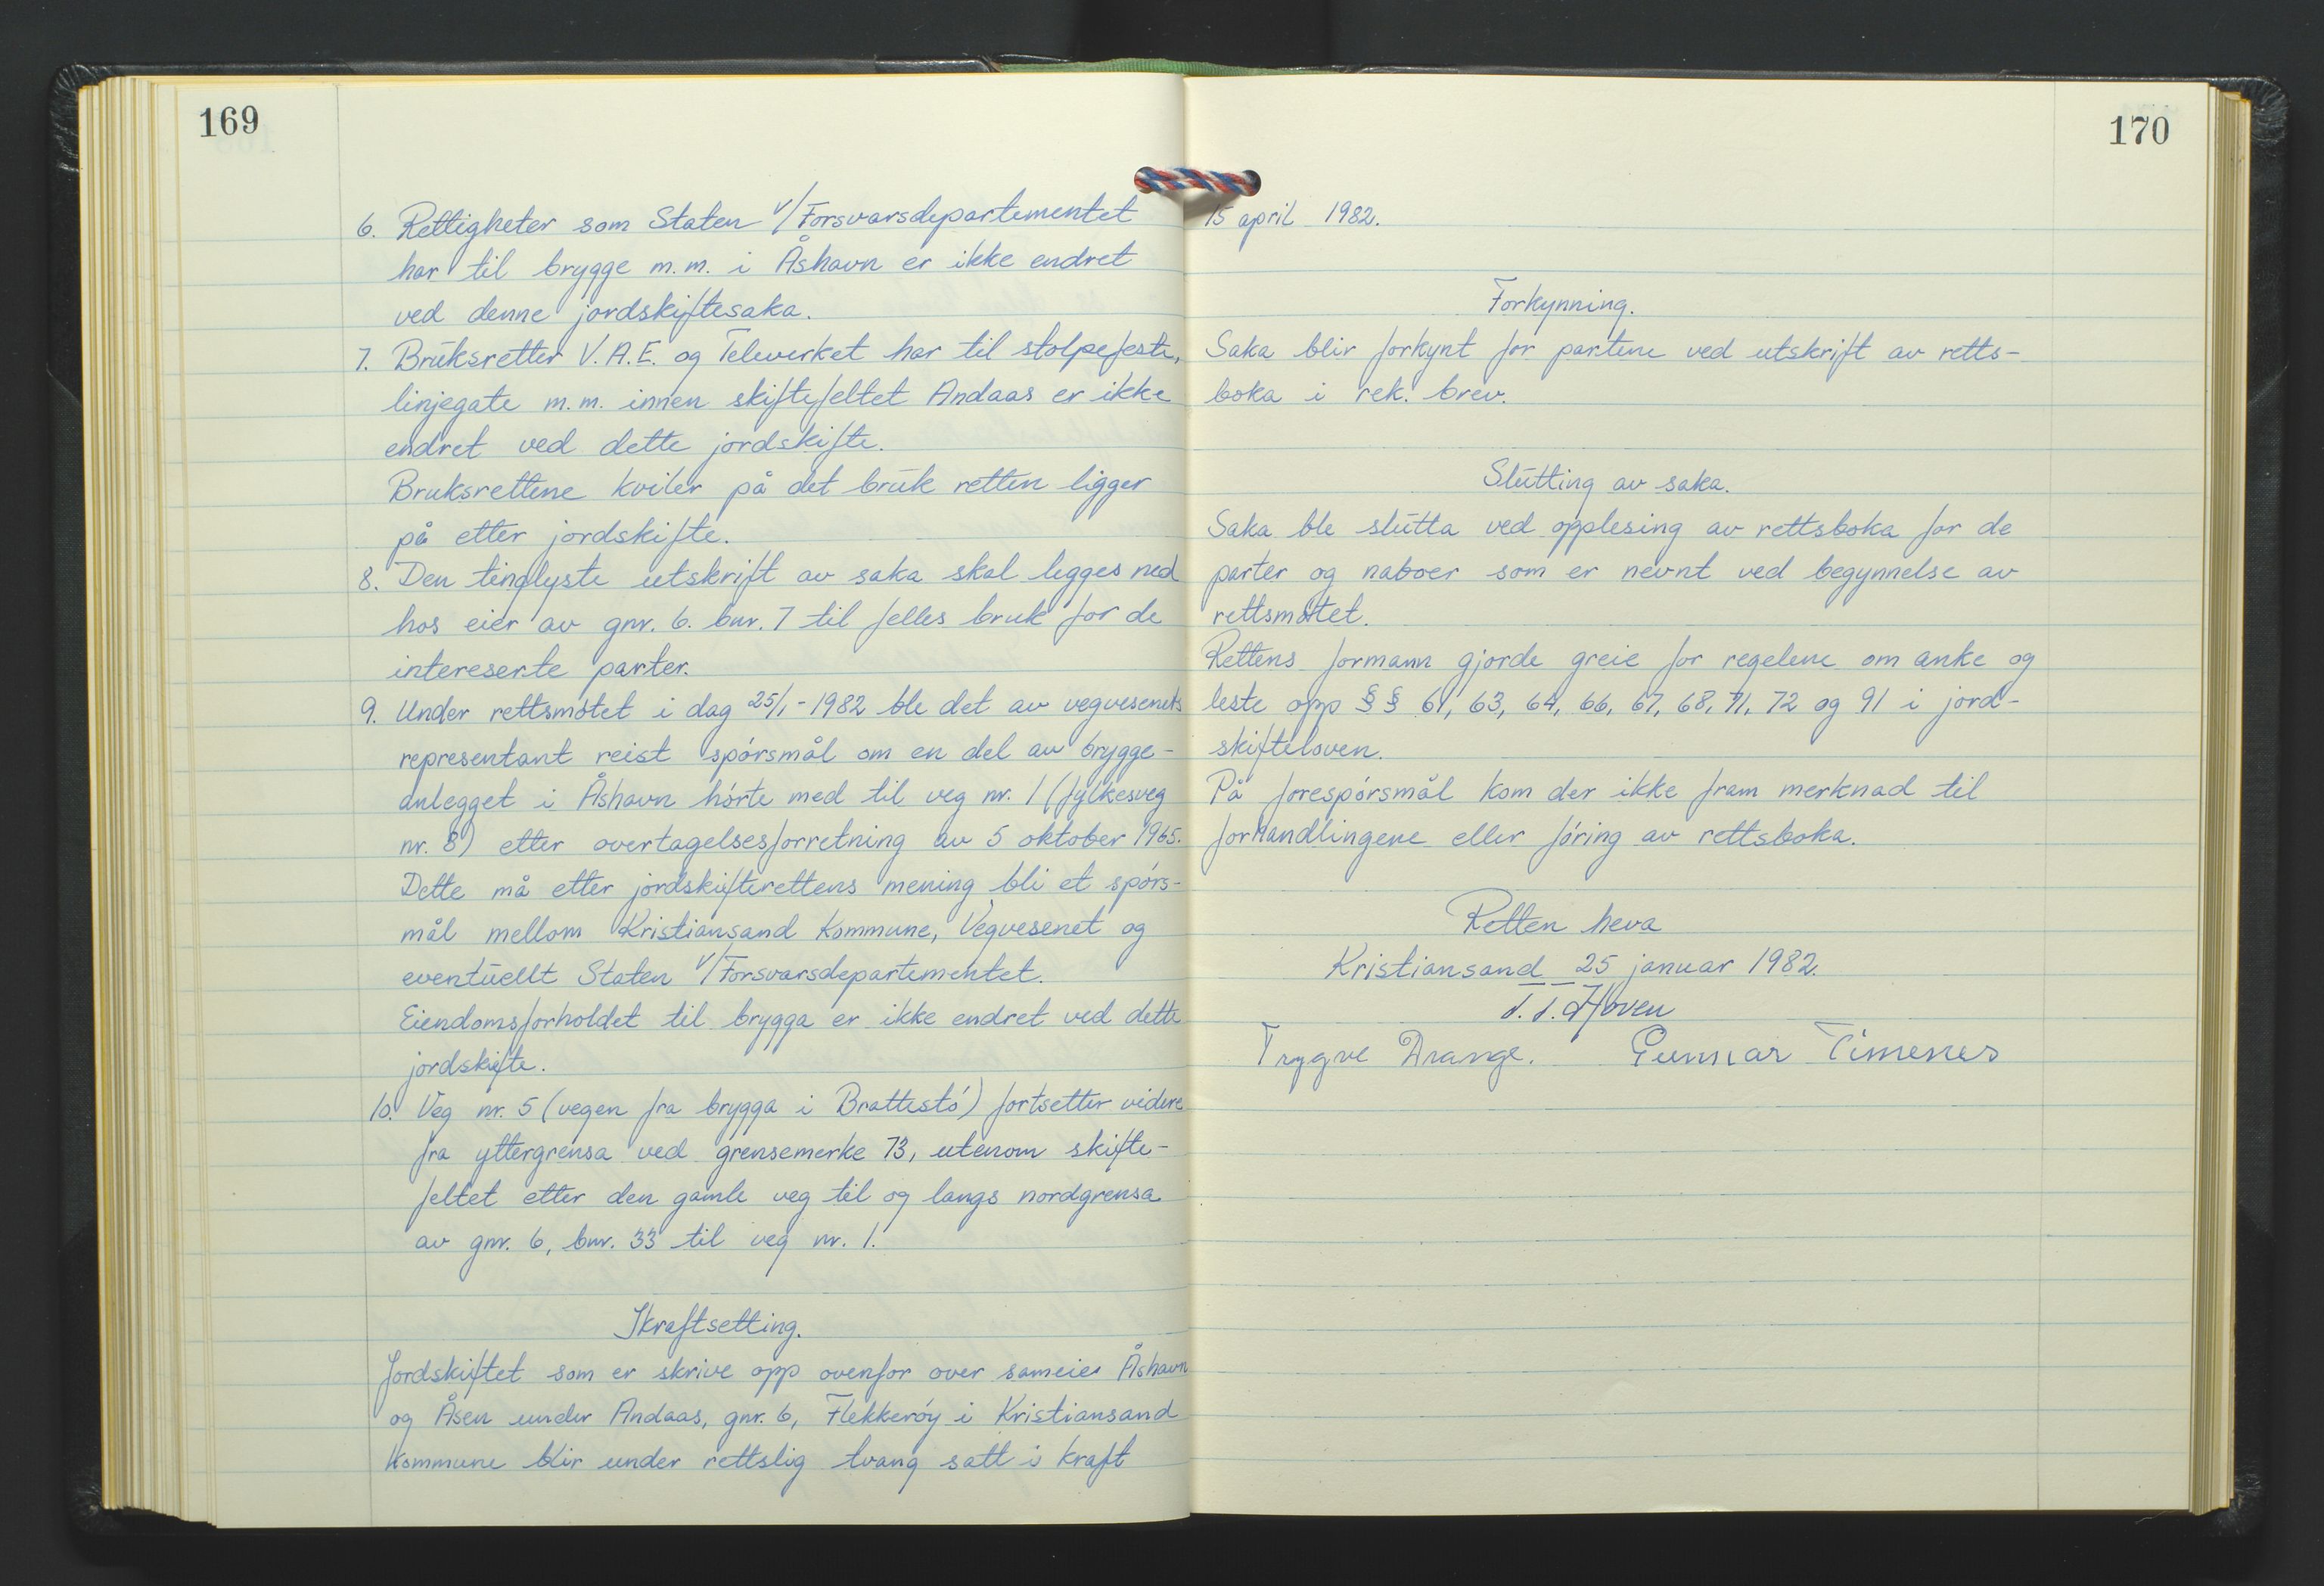 169
6. Rettigheter som Staten v/Forsvarsdepartementet
har til brygge m.m. i Åshavn er ikke endret
ved denne jordskiftesaka.
7. Bruksretter V.A.E. og Televerket har til stolpefeste,
linjegate m.m. innen skiftefeltet Andaas er ikke
endret ved dette jordskifte.
Bruksrettene kviler på det bruk retten ligger
på etter jordskifte.
8. Den tinglyste utskrift av saka skal legges ned
hos eier av gnr. 6. bnr. 7 til felles bruk for de
intereserte parter.
9. Under rettsmøtet i dag 25/1-1982 ble det av vegvesenets
representant reist spørsmål om en del av brygge-
anlegget i Åshavn hørte med til veg nr. 1 (fylkesveg
nr. 8) etter overtagelsesforretning av 5 oktober 1965.
Dette må etter jordskifterettens mening bli et spørs-
mål mellom Kristiansand Kommune, Vegvesenet og
eventuellt Staten v/Forsvarsdepartementet.
Eiendomsforholdet til brygga er ikke endret ved dette
jordskifte.
10. Veg nr. 5 (vegen fra brygga i Brattestø) fortsetter videre
fra yttergrensa ved grensemerke 73, utenom skifte-
feltet etter den gamle veg til og langs nordgrensa
av gnr. 6, bnr. 33 til veg nr. 1.
Ikraftsetting.
Jordskiftet som er skrive opp ovenfor over sameier Åshavn
og Åsen under Andaas, gnr. 6, Flekkerøy i Kristiansand
Kommune blir under rettslig tvang satt i kraft
170
15 april 1982.
Forkynning.
Saka blir forkynt for partene ved utskrift av retts-
boka i rek. brev.
Slutting av saka.
Saka ble slutta ved opplesing av rettsboka for de
parter og naboer som er nevnt ved begynnelse av
rettsmøtet.
Rettens formann gjorde greie for regelene om anke og
leste opp § § 61, 63, 64, 66, 67, 68, 71, 72 og 91 i jord-
skifteloven.
På forespørsmål kom der ikke fram merknad til
forhandlingene eller føring av rettsboka.
Retten heva
Kristiansand 25 januar 1982.
T. T. Hoven
Trygve Drange. Gunnar Timenes